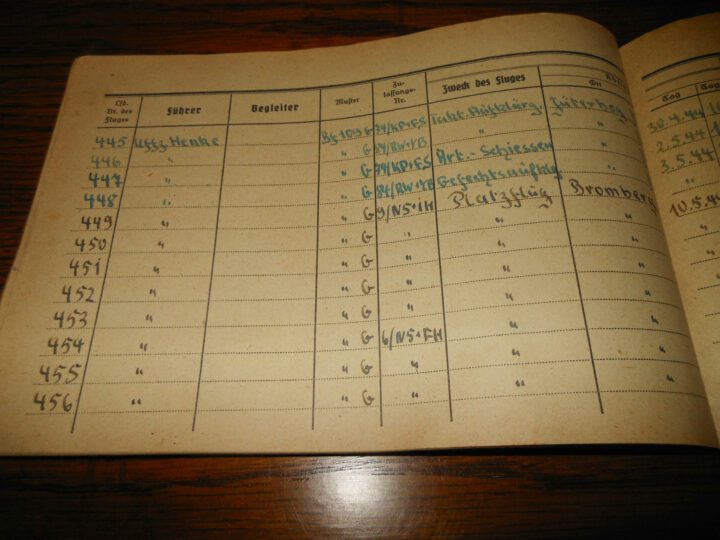 Lfd. Nr. des Fluges Führer Begleiter Muster Zu-lassungs-Nr. Zweck des Fluges Ort Tag
445 Uffz. Henke Bf 109 G 74/KP+ES Takt. Aufklärg. Jüterbog 30.4.44
446 " " G 84/RW+YB " " 2.5.44
447 " " G 74/KP+ES Art.-Schiessen " 3.5.44
448 " " G 84/RW+YB Gefechtsaufklg. " "
449 " " G 9/NS+IH Platzflug Bromberg 10.5.44
450 " " G " " "
451 " " G " " "
452 " " G " " "
453 " " G " " "
454 " " G 6/NS+FH " "
455 " " G " " "
456 " " G " " "